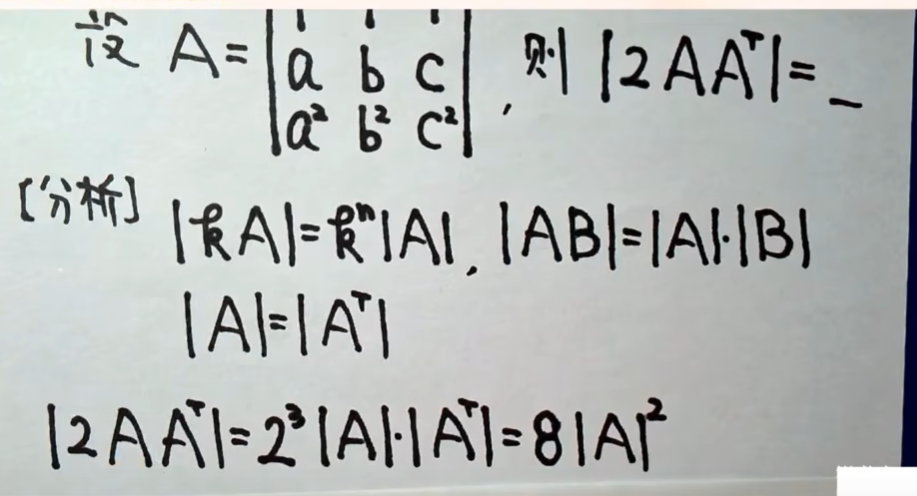 设 A = | 1 1 1 |
| a b c | , 则 |2AAᵀ| = _
| a² b² c² |
[分析] |kA|=kⁿ|A|, |AB|=|A|·|B|
|A|=|Aᵀ|
|2AAᵀ|=2³|A|·|Aᵀ|=8|A|²